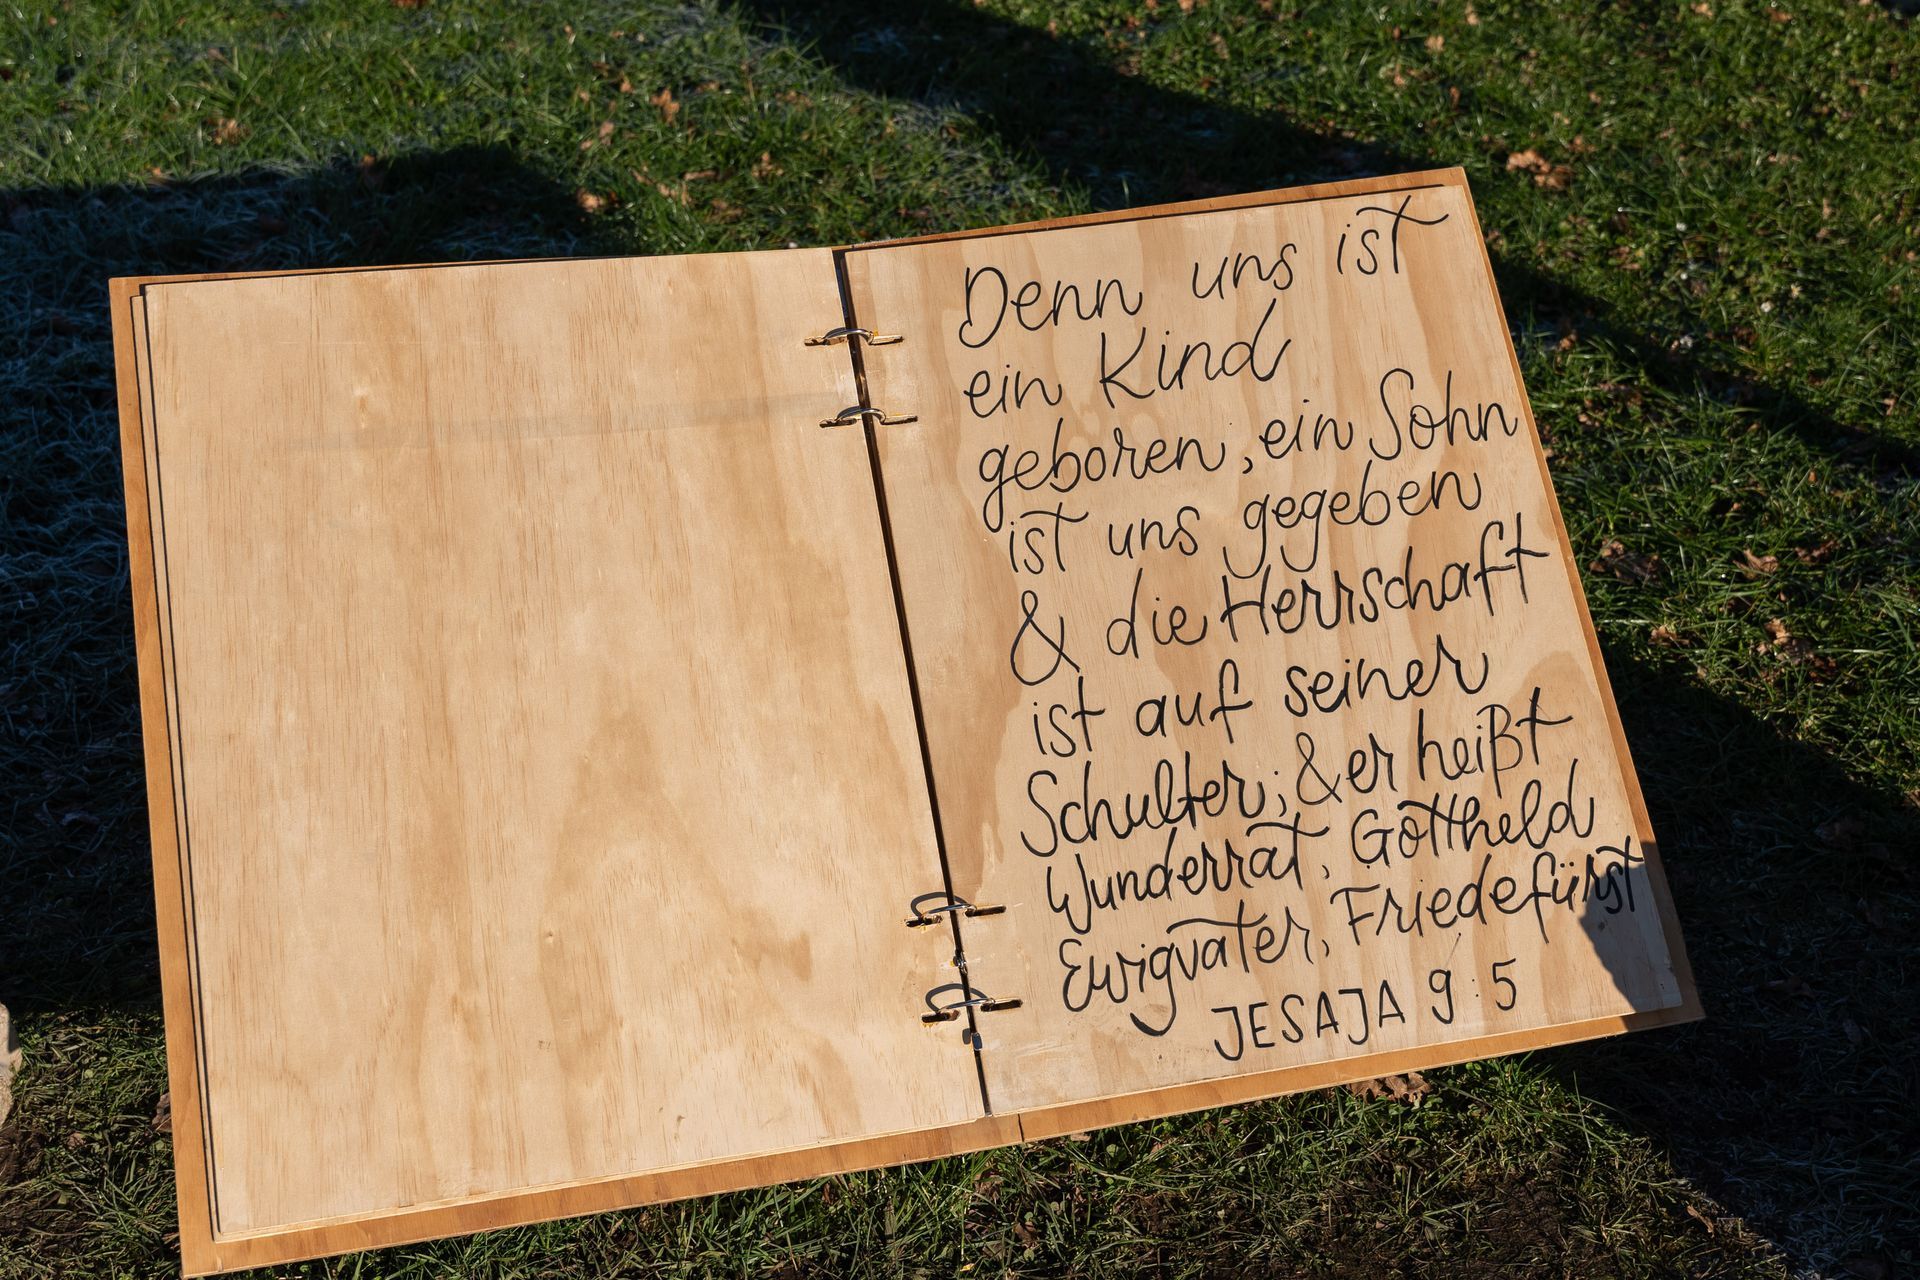 Denn uns ist
ein Kind
geboren, ein Sohn
ist uns gegeben
& die Herrschaft
ist auf seiner
Schulter; & er heißt
Wunderrat, Gottheld
Ewigvater, Friedefürst
JESAJA 9:5